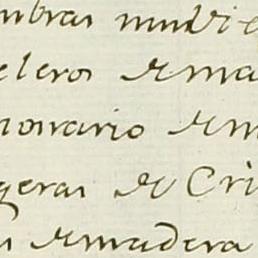 mbras
eleros de ma
onario de m
geras de Cri
s de madera